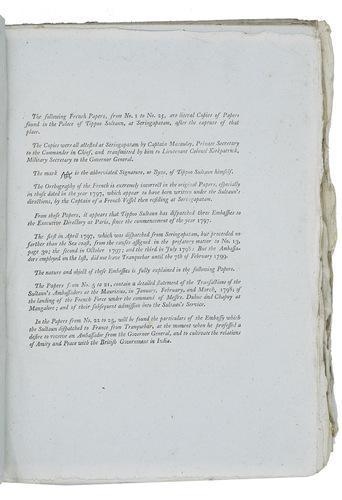 The following French Papers, from No. 1 to No. 25, are literal Copies of Papers
found in the Palace of Tippoo Sultaun, at Seringapatam, after the capture of that
place.
The Copies were all attested at Seringapatam by Captain Macauley, Private Secretary
to the Commander in Chief, and transmitted by him to Lieutenant Colonel Kirkpatrick,
Military Secretary to the Governor General.
The mark is the abbreviated Signature, or Byze, of Tippoo Sultaun himself.
The Orthography of the French is extremely incorrect in the original Papers, especially
in those dated in the year 1797, which appear to have been written under the Sultaun's
directions, by the Captain of a French Vessel then residing at Seringapatam.
From these Papers, it appears that Tippoo Sultaun has dispatched three Embassies to
the Executive Directory at Paris, since the commencement of the year 1797.
The first in April 1797, which was dispatched from Seringapatam, but proceeded no
further than the Sea coast, from the causes assigned in the prefatory matter to No. 13,
page 39; the second in October 1797; and the third in July 1798: But the Ambassa-
dors employed on the last, did not leave Tranquebar until the 7th of February 1799.
The nature and object of these Embassies is fully explained in the following Papers.
The Papers from No. 5 to 21, contain a detailed Statement of the Transactions of the
Sultaun's Ambassadors at the Mauritius, in January, February, and March, 1798; of
the landing of the French Force under the command of Messrs. Dubuc and Chapuy at
Mangalore; and of their subsequent admission into the Sultaun's Service.
In the Papers from No. 22 to 25, will be found the particulars of the Embassy which
the Sultaun dispatched to France from Tranquebar, at the moment when he professed a
desire to receive an Ambassador from the Governor General, and to cultivate the relations
of Amity and Peace with the British Government in India.